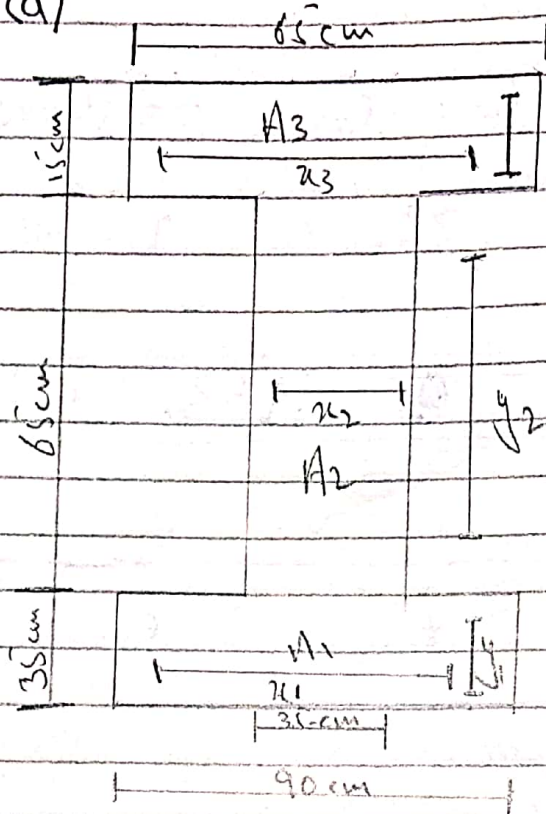 (a)
65cm
15cm
A3
x3
65cm
x2
y2
A2
35cm
A1
x1
35cm
90cm